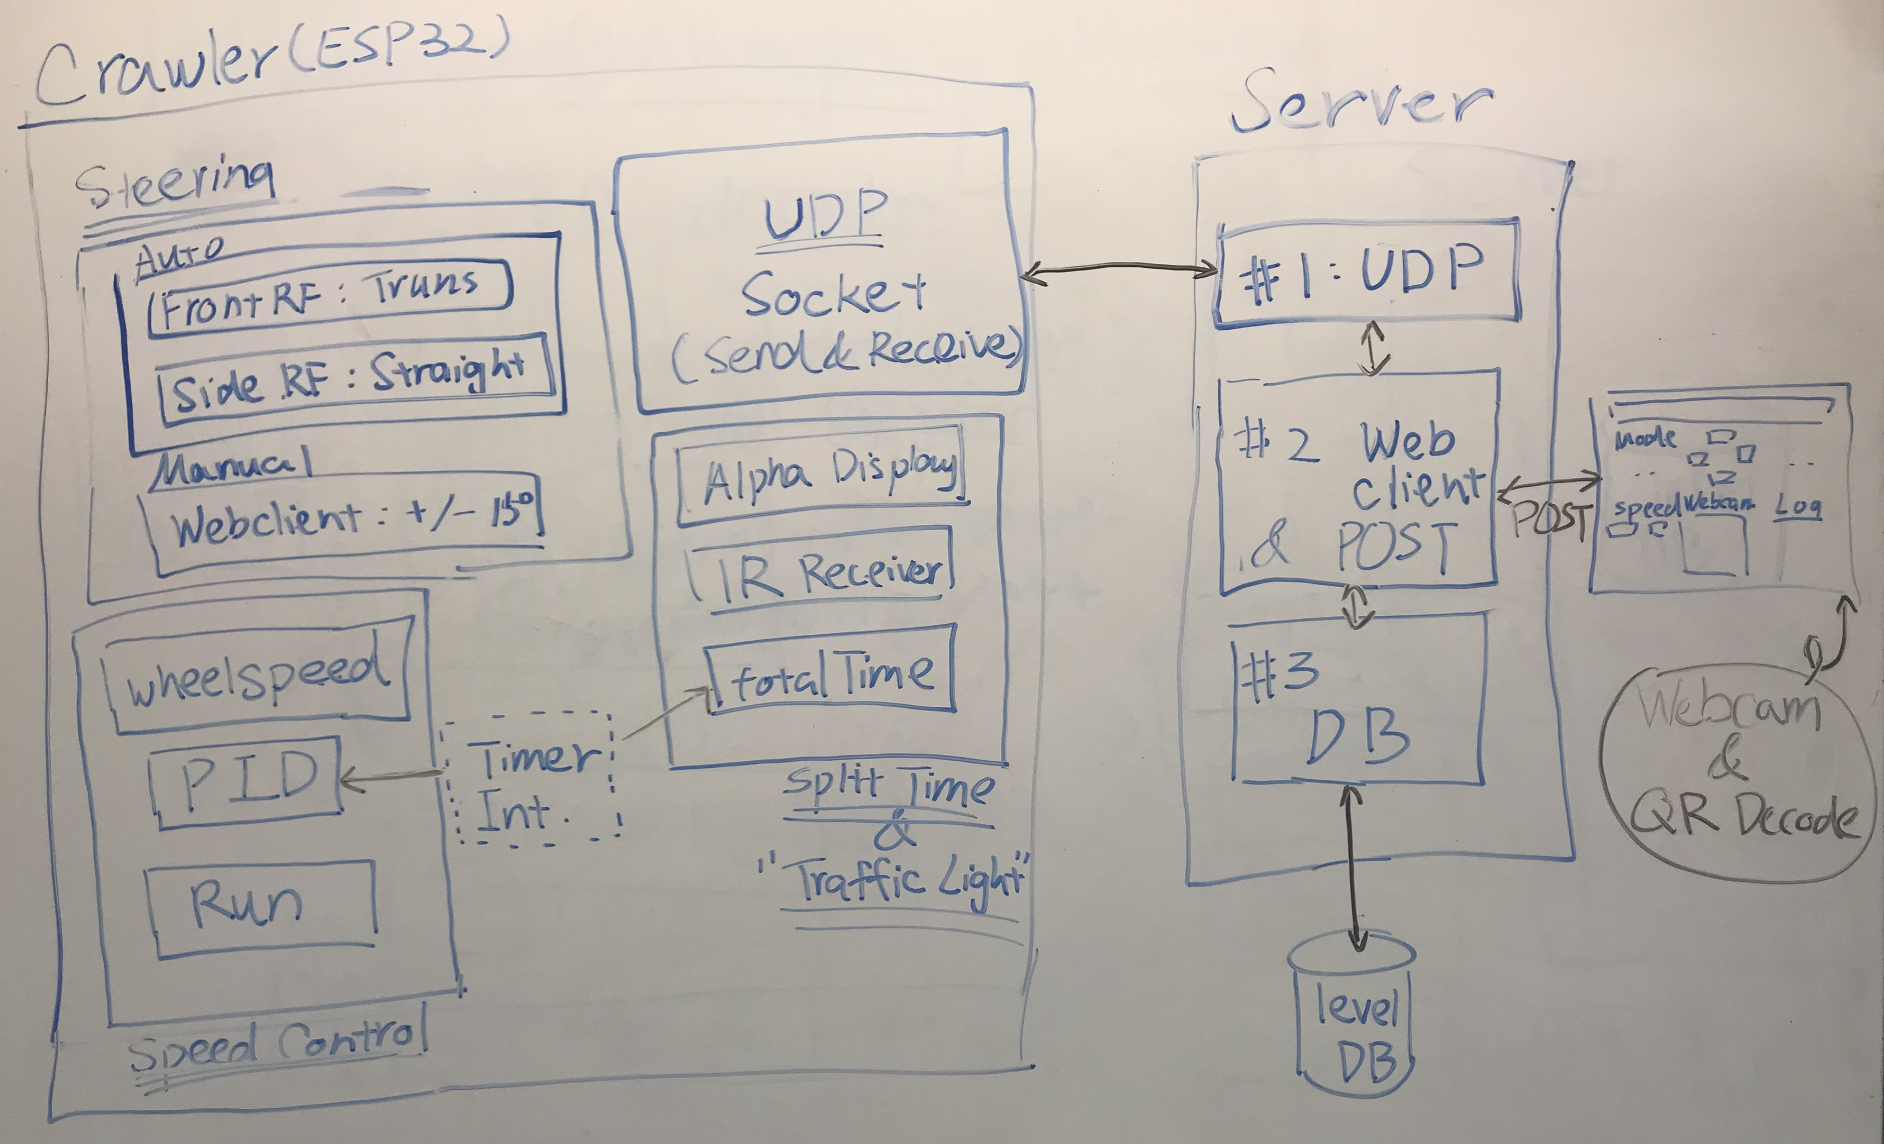 Crawler (ESP32)
Steering
Auto
Front RF : Truns
Side RF : Straight
Manual
Webclient : +/- 15°
wheelspeed
PID
Run
Speed Control
Timer
Int.
UDP
Socket
(Send & Receive)
Alpha Display
IR Receiver
total Time
Split Time
&
"Traffic Light"
Server
#1 : UDP
#2 Web
client
& POST
#3
DB
level
DB
POST
Mode
Speed Webcam Log
Webcam
&
QR Decode